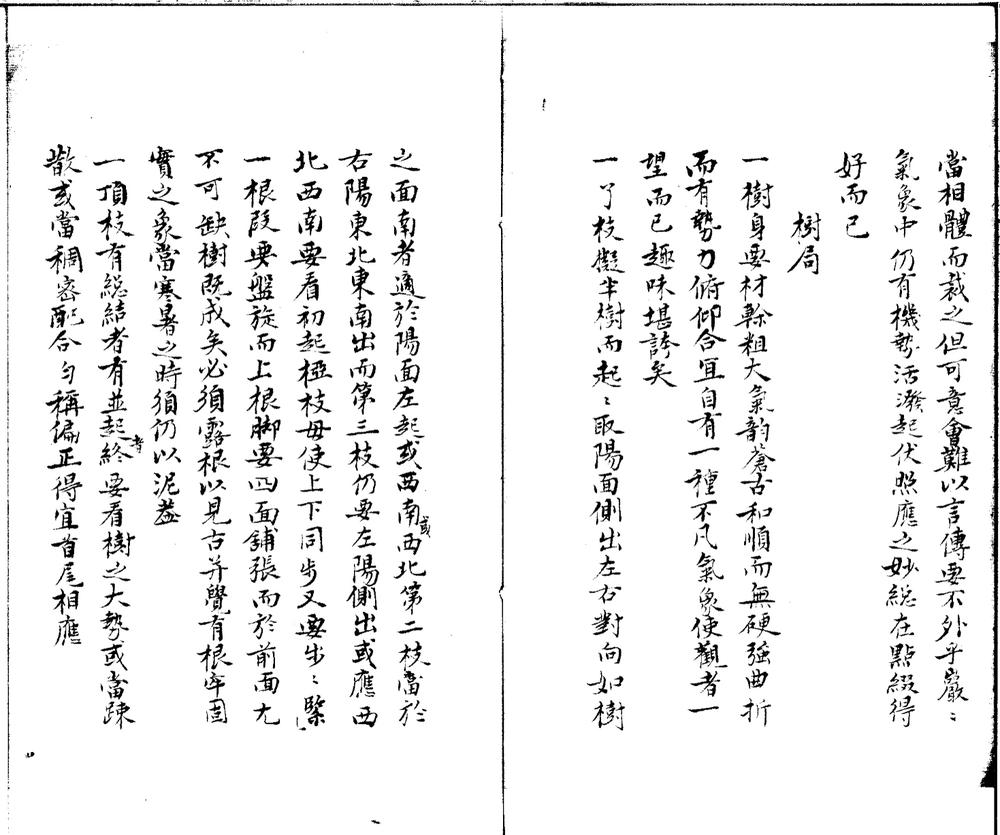 當相體而裁之但可意會難以言傳要不外乎嚴〻
氣象中仍有機勢活潑起伏照應之妙総在點綴得
好而已
樹局
一樹身要材榦粗大氣韵蒼古和順而無硬強曲折
而有勢力俯仰合宜自有一種不凡氣象使觀者一
望而已趣味堪誇矣
一丫枝擬半樹而起〻取陽面側出左右對向如樹
之面南者適於陽面左起或西南或西北第二枝當於
右陽東北東南出而第三枝仍要左陽側出或應西
北西南要看初起極枝毋使上下同步又要步〻緊
一根段要盤旋而上根脚要四面舖張而於前面尤
不可缺樹既成矣必須露根以見古并覺有根牢固
實之象當寒暑之時須仍以泥葢
一頂枝有総結者有並起者終要看樹之大勢或當踈
散或當稠密配合勻稱偏正得宜首尾相應